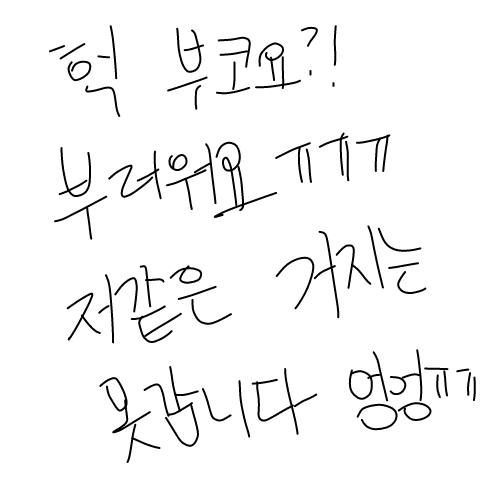 헉 부코요?!
부러워요 ㅠㅠㅠ
저같은 거지는
못갑니다 엉엉ㅠㅠ